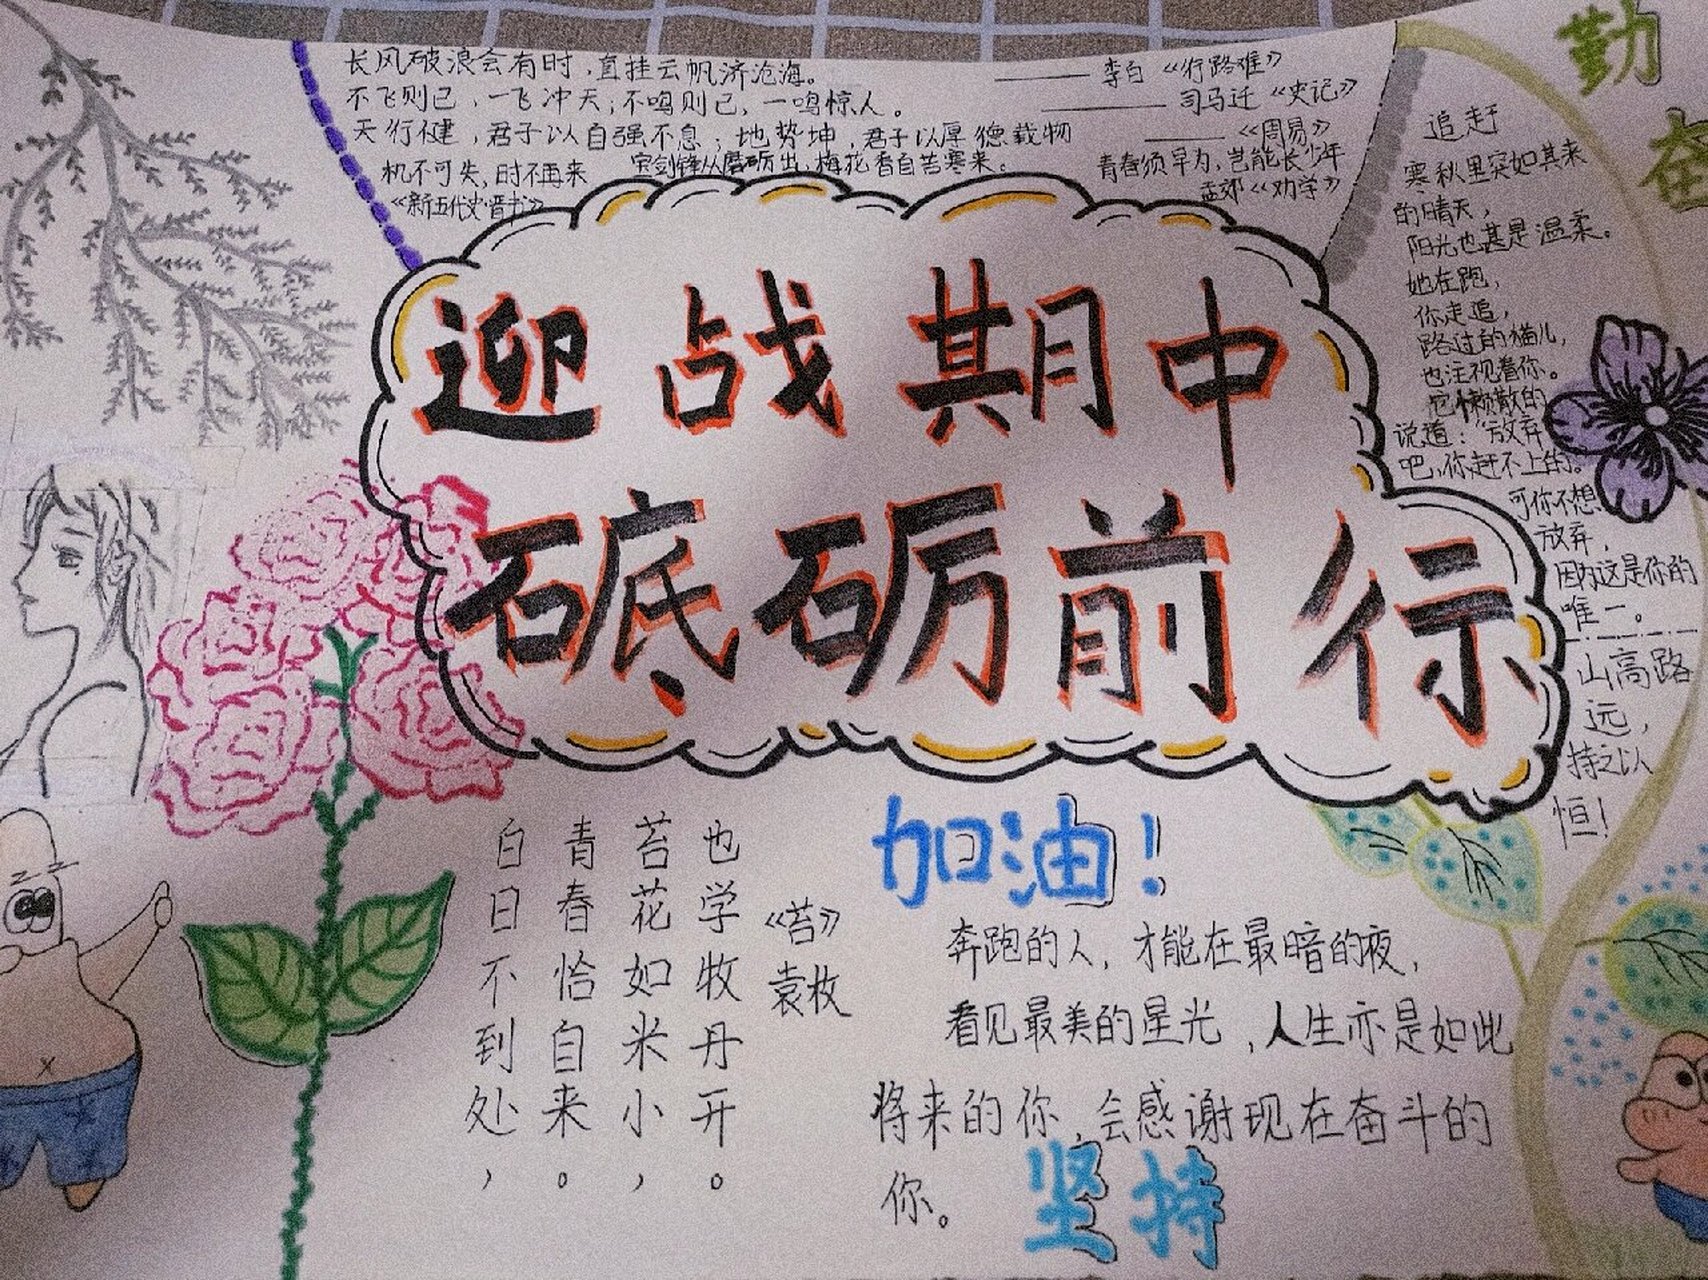 长风破浪会有时，直挂云帆济沧海。 ——李白《行路难》
不飞则已，一飞冲天；不鸣则已，一鸣惊人。 ——司马迁《史记》
天行健，君子以自强不息；地势坤，君子以厚德载物 ——《周易》
机不可失，时不再来
《新五代史·晋书》
宝剑锋从磨砺出，梅花香自苦寒来。
青春须早为，岂能长少年
孟郊《劝学》
迎战期中
砥砺前行
勤
奋
追赶
寒秋里突如其来
的晴天，
阳光也甚是温柔。
她在跑，
你走追，
路过的猫儿，
也注视着你。
它懒散的
说道：“放弃
吧，你赶不上的。
可你不想
放弃，
因为这是你的
唯一。
山高路
远，
持之以
恒！
白日不到处，
青春恰自来。
苔花如米小，
也学牡丹开。
《苔》
袁枚
加油！
奔跑的人，才能在最暗的夜，
看见最美的星光，人生亦是如此
将来的你，会感谢现在奋斗的
你。
坚持